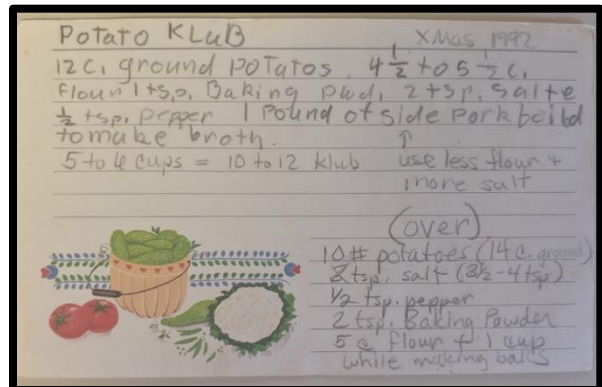 Potato KLuB XMas 1992
12 c. ground potatos 4 1/2 to 5 1/2 c.
Flour 1 tsp. Baking pwd, 2 tsp. salte
1/2 tsp. pepper 1 Pound of side pork boild
to make broth. ↑
5 to 6 cups = 10 to 12 klub use less flour +
more salt
(over)
10# potatoes (14 c. ground)
2 tsp. salt (3 1/2 - 4 tsp)
1/2 tsp. pepper
2 tsp. Baking Powder
5 c flour + 1 cup
while making balls